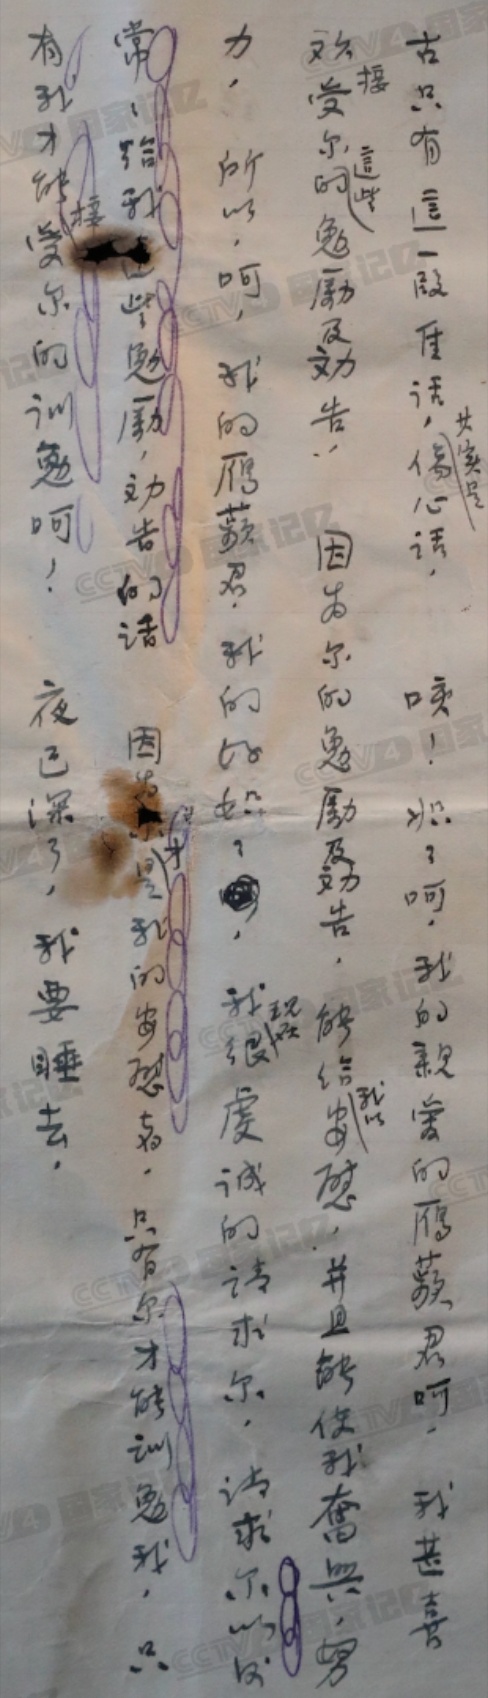 古只有這一段佳话，其实是傷心话，唉！姐々呵，我的親爱的鴈蘋君呵，我甚喜
欢接受尔的這些勉励及劝告，因为尔的勉励及劝告，能给我以安慰，并且能使我奋兴，努
力，所以，呵，我的鴈蘋君，我的好姐々，我现在很虔诚的请求尔，请求尔以后
常々给我這些勉励，劝告的话 因为尔是我的安慰者，只有尔才能训勉我，只
有我才能接受尔的训勉呵！夜已深了，我要睡去，
CCTV4 国家记忆